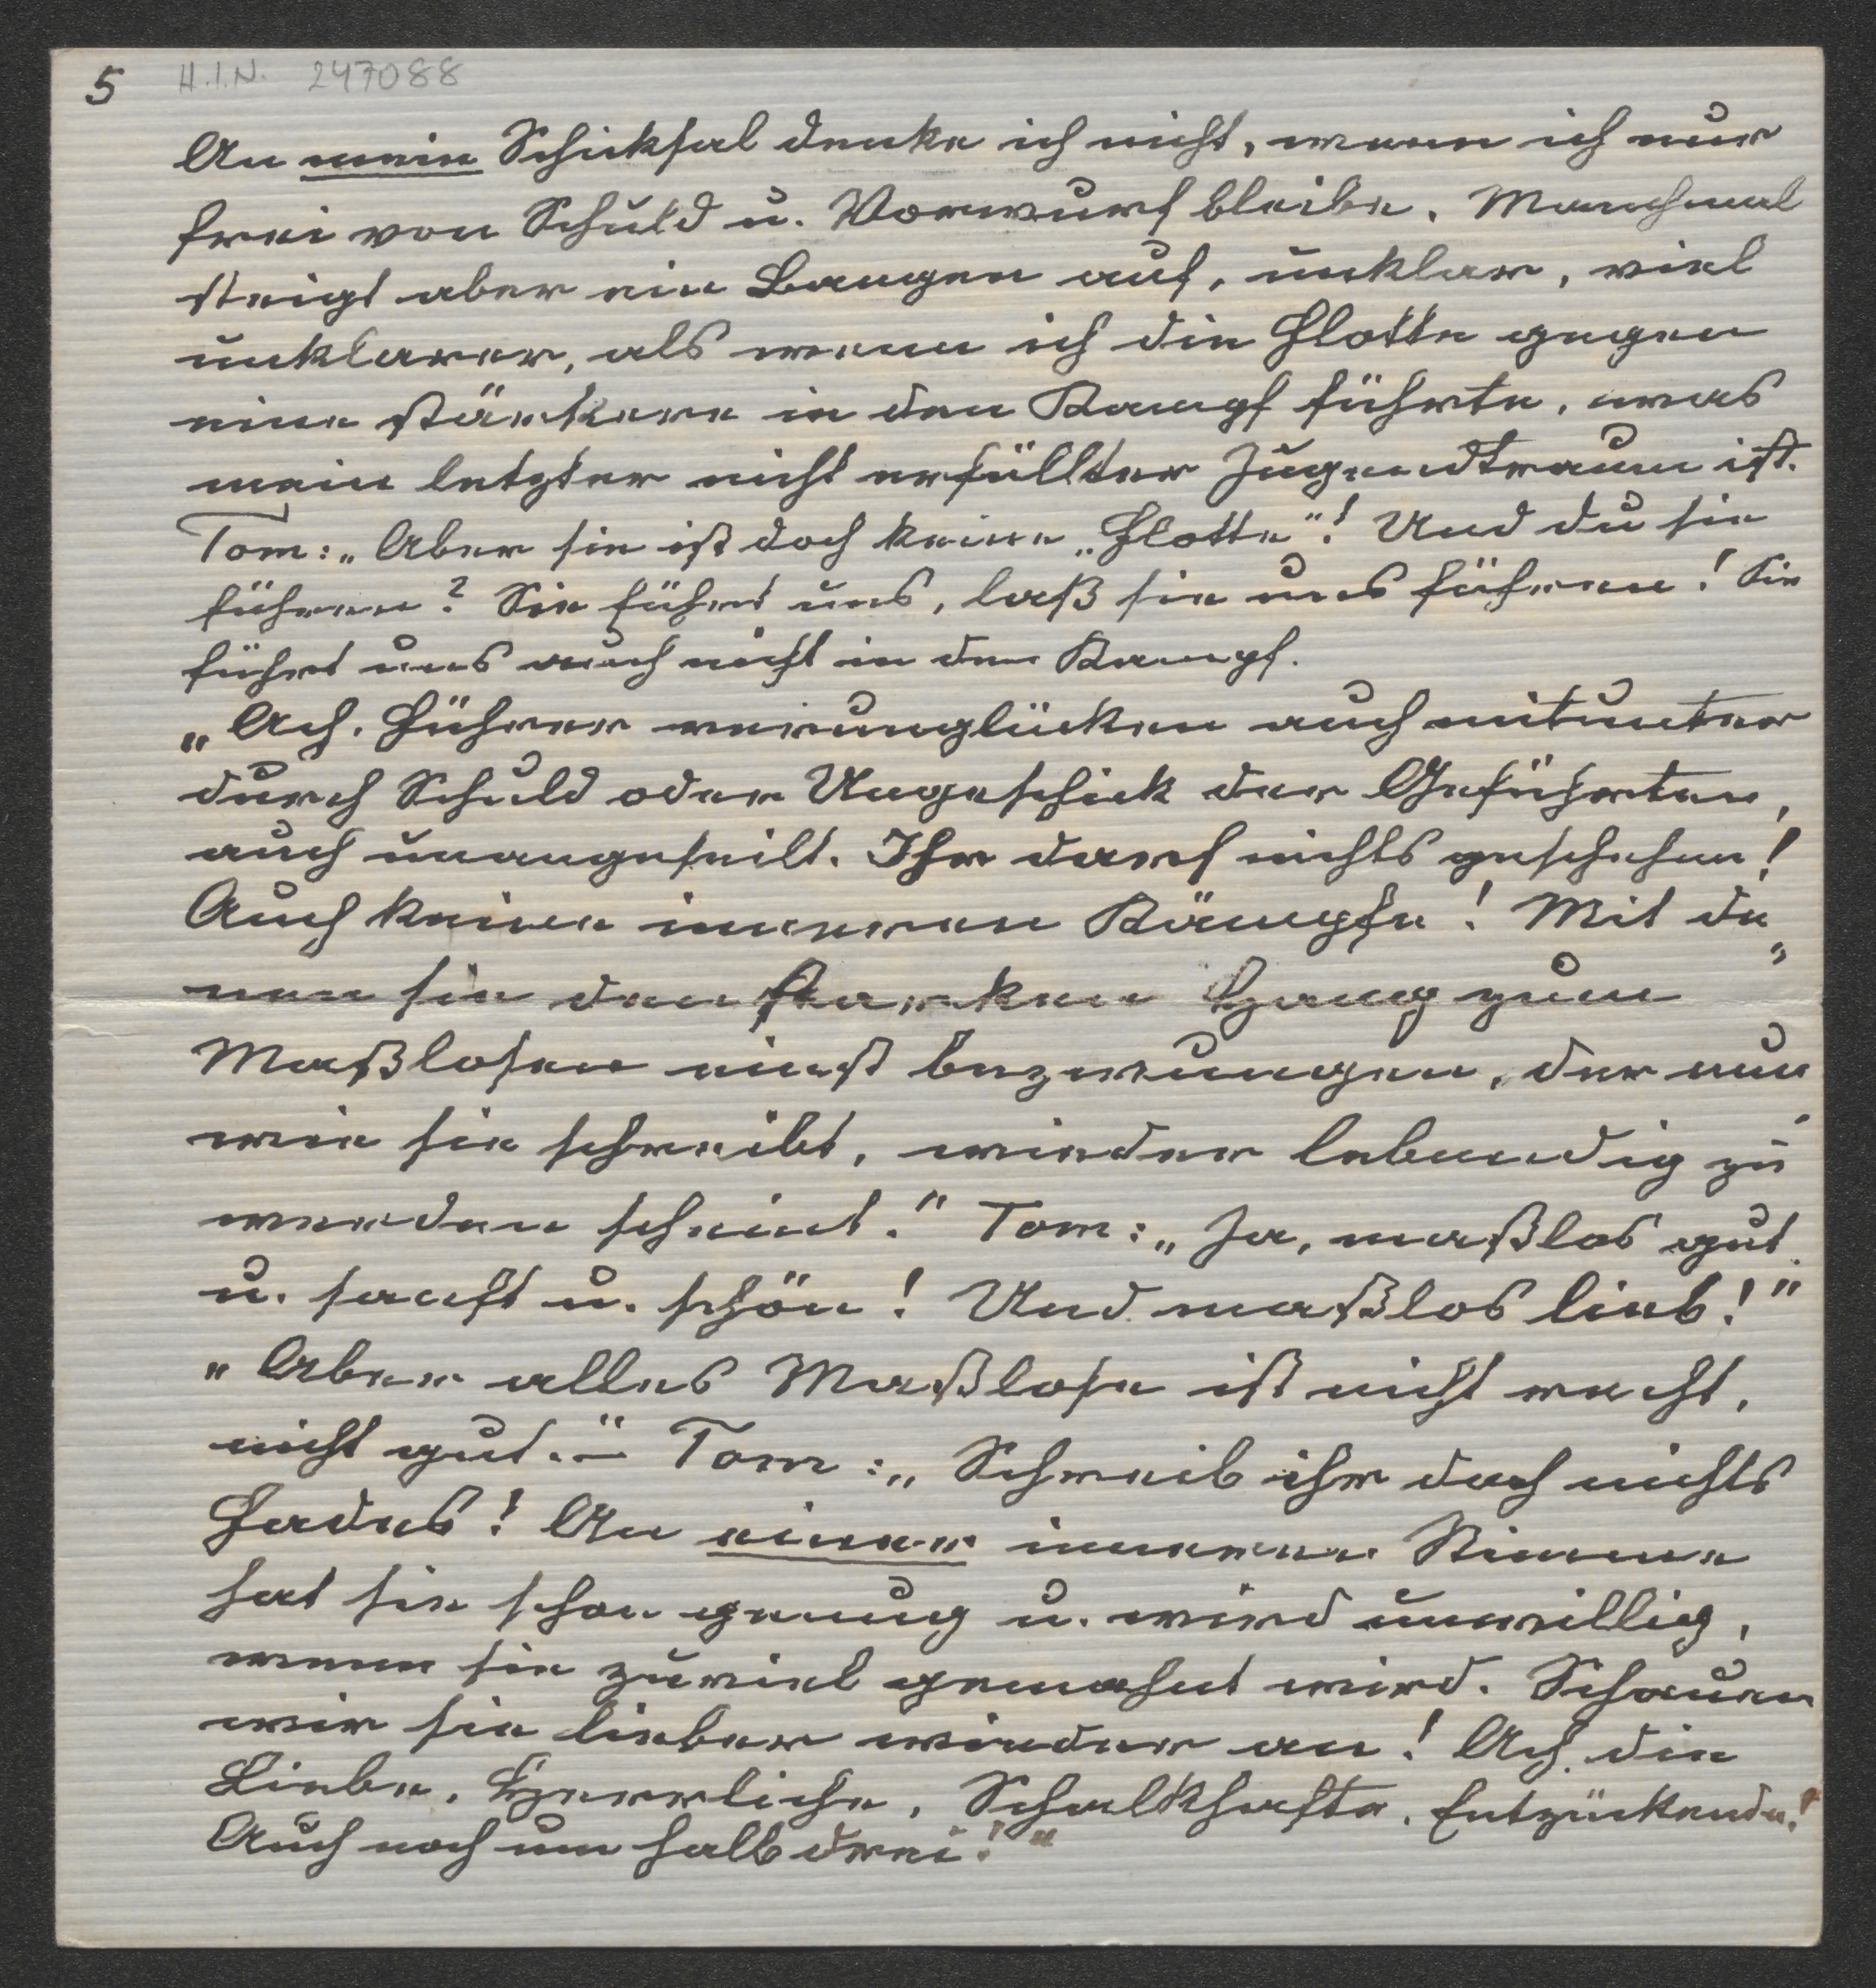 5 H.I.N. 247088
An mein Schicksal denke ich nicht, wenn ich nur
frei von Schuld u. Vorwurf bleibe. Manchmal
steigt aber ein Bangen auf, unklar, viel
unklarer, als wenn ich die Flotte gegen
eine stärkere in den Kampf führte, was
mein letzter nicht erfüllter Jugendtraum ist.
Tom: „Aber sie ist doch keine „Flotte"! Und du sie
führen? Sie führt uns, laß sie uns führen! Sie
führt uns auch nicht in den Kampf.
„Ach, Führer verunglücken auch mitunter
durch Schuld oder Ungeschick der Geführten,
auch unangeseilt. Ihr darf nichts geschehen!
Auch keine inneren Kämpfe! Mit de„
nen sie den starken Hang zum
Maßlosen einst bezwungen, der nun
wie sie schreibt, wieder lebendig zu
werden scheint." Tom: „Ja, maßlos gut
u. sanft u. schön! Und maßlos lieb!"
„Aber alles Maßlose ist nicht recht,
nicht gut." – Tom: „Schreib ihr doch nichts
Fades! An einer inneren Stimme
hat sie schon genug u. wird unwillig,
wenn sie zuviel gemahnt wird. Schauen
wir sie lieber wieder an! Ach, die
Liebe, Herrliche, Schalkhafte, Entzückende!
Auch noch um halb drei!"